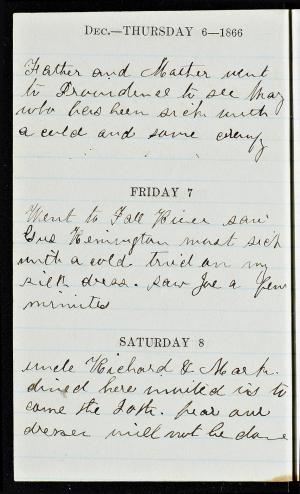 DEC.—THURSDAY 6—1866
Father and Mother went
to Providence to see May
who has been sick with
a cold and some
FRIDAY 7
Went to Fall River saw
Gus Remington most sick
with a cold tried on my
silk dress. saw Joe a few
minutes
SATURDAY 8
uncle Richard & Mark
dined here invited us to
come the 20th. fear our
dresses will not be done